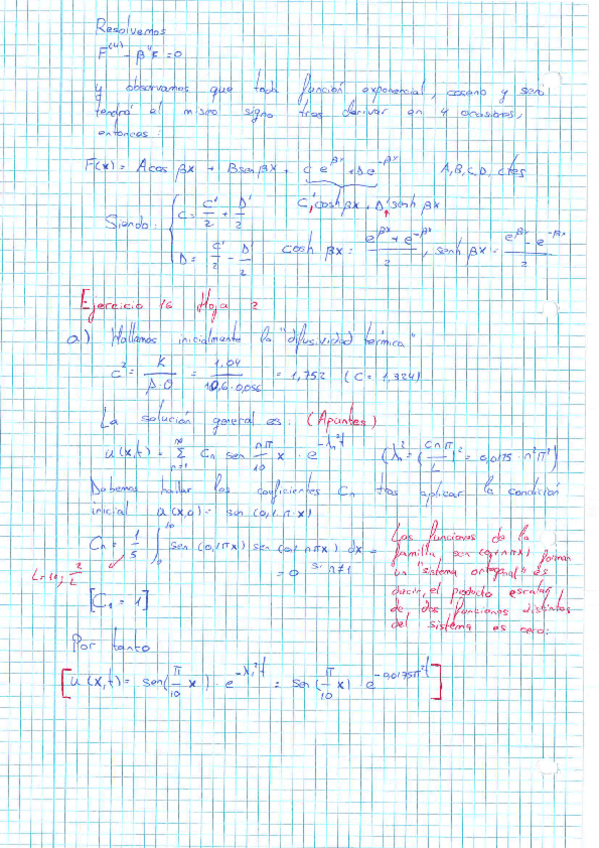 Resolvemos
F⁽⁴⁾ - β⁴F = 0
y observamos que toda función exponencial, coseno y seno
tendrá el mismo signo tras derivar en 4 ocasiones,
entonces:
F(x) = A cos βx + B sen βx + C e^{βx} + D e^{-βx}    A, B, C, D, ctes
C' cosh βx + D' senh βx
Siendo: { C = C'/2 + D'/2
D = C'/2 - D'/2    cosh βx = (e^{βx} + e^{-βx})/2, senh βx = (e^{βx} - e^{-βx})/2
Ejercicio 16 Hoja 2
a) Hallamos inicialmente la "difusividad térmica"
c² = K/(ρ·σ) = 1,04/(10,6·0,056) = 1,752 (C = 1,324)
La solución general es: (Apuntes)
u(x,t) = Σ_{n=1}^{∞} Cn sen (nπ/10) x · e^{-λn² t}    (λn² = (cnπ/L)² = 0,0175·n²π²)
Debemos hallar los coeficientes Cn tras aplicar la condición
inicial u(x,0) = sen (0,1πx)
Cn = 1/5 ∫₀¹⁰ sen (0,1πx) sen (0,1 nπx) dx =
= 0 si n≠1
L=10; 2/L
[C₁ = 1]
Las funciones de la
familia sen (0,1nπx) forman
un "sistema ortogonal" es
decir, el producto escalar
de dos funciones distintas
del sistema es cero.
Por tanto
[u(x,t) = sen(π/10 x) · e^{-λ₁² t} = sen (π/10 x) e^{-0,0175π² t}]